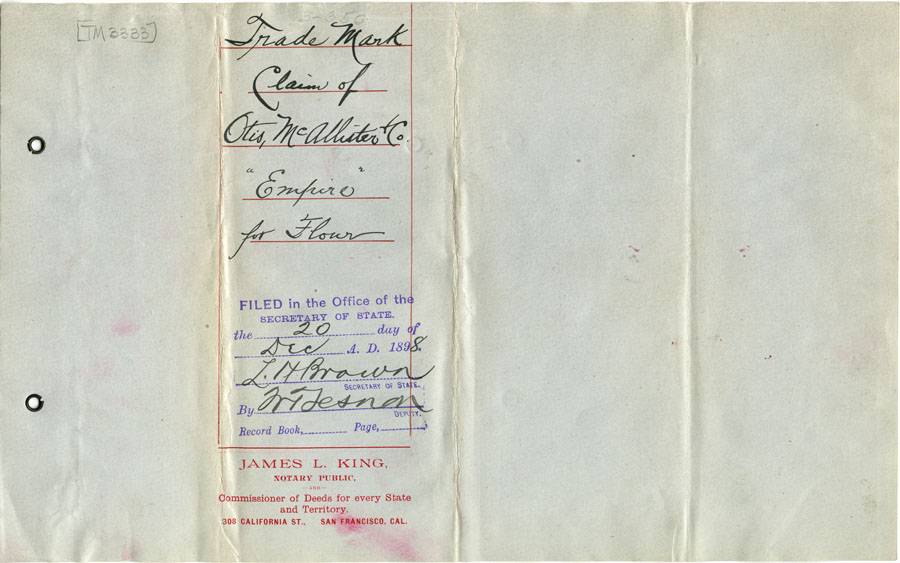 [TM 3333]
Trade Mark
Claim of
Otis, McAllister & Co.
"Empire"
for Flour
FILED in the Office of the
SECRETARY OF STATE.
the 20 day of
Dec A. D. 1898.
L. H Brown
SECRETARY OF STATE.
By
DEPUTY.
Record Book, Page,
JAMES L. KING,
NOTARY PUBLIC,
—AND—
Commissioner of Deeds for every State
and Territory.
308 CALIFORNIA ST., SAN FRANCISCO, CAL.